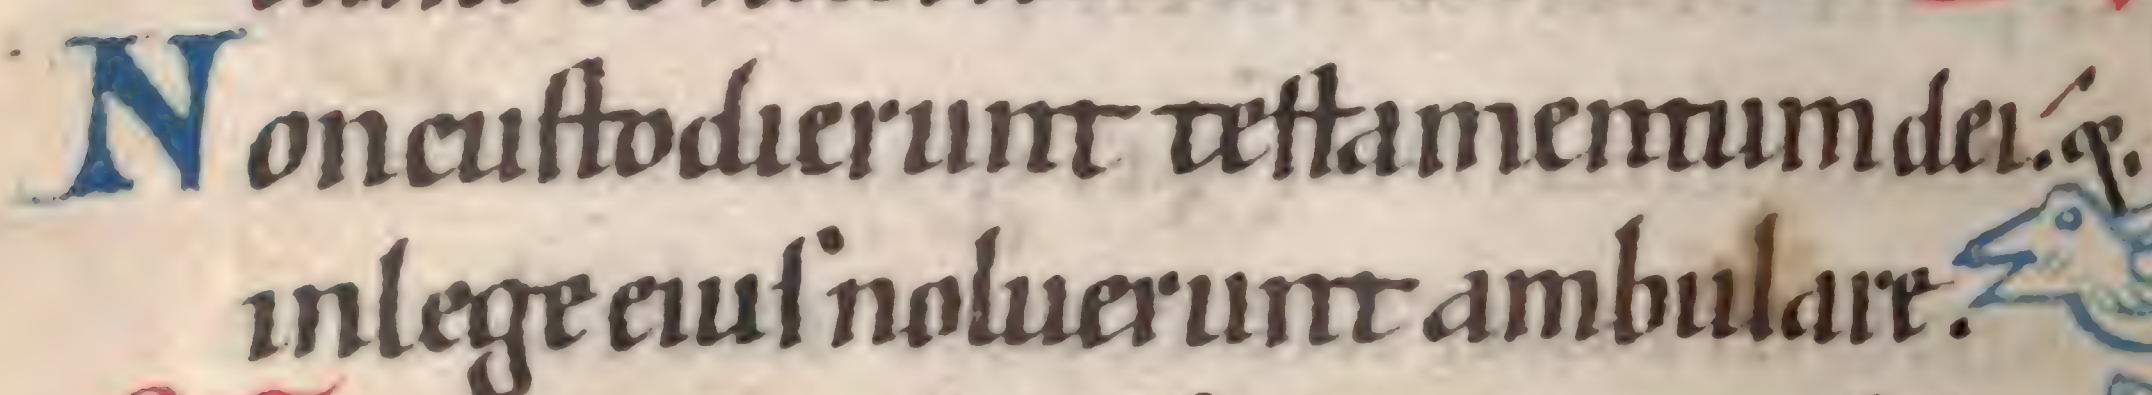 Non custodierunt testamentum dei. &.
in lege eius noluerunt ambulare.